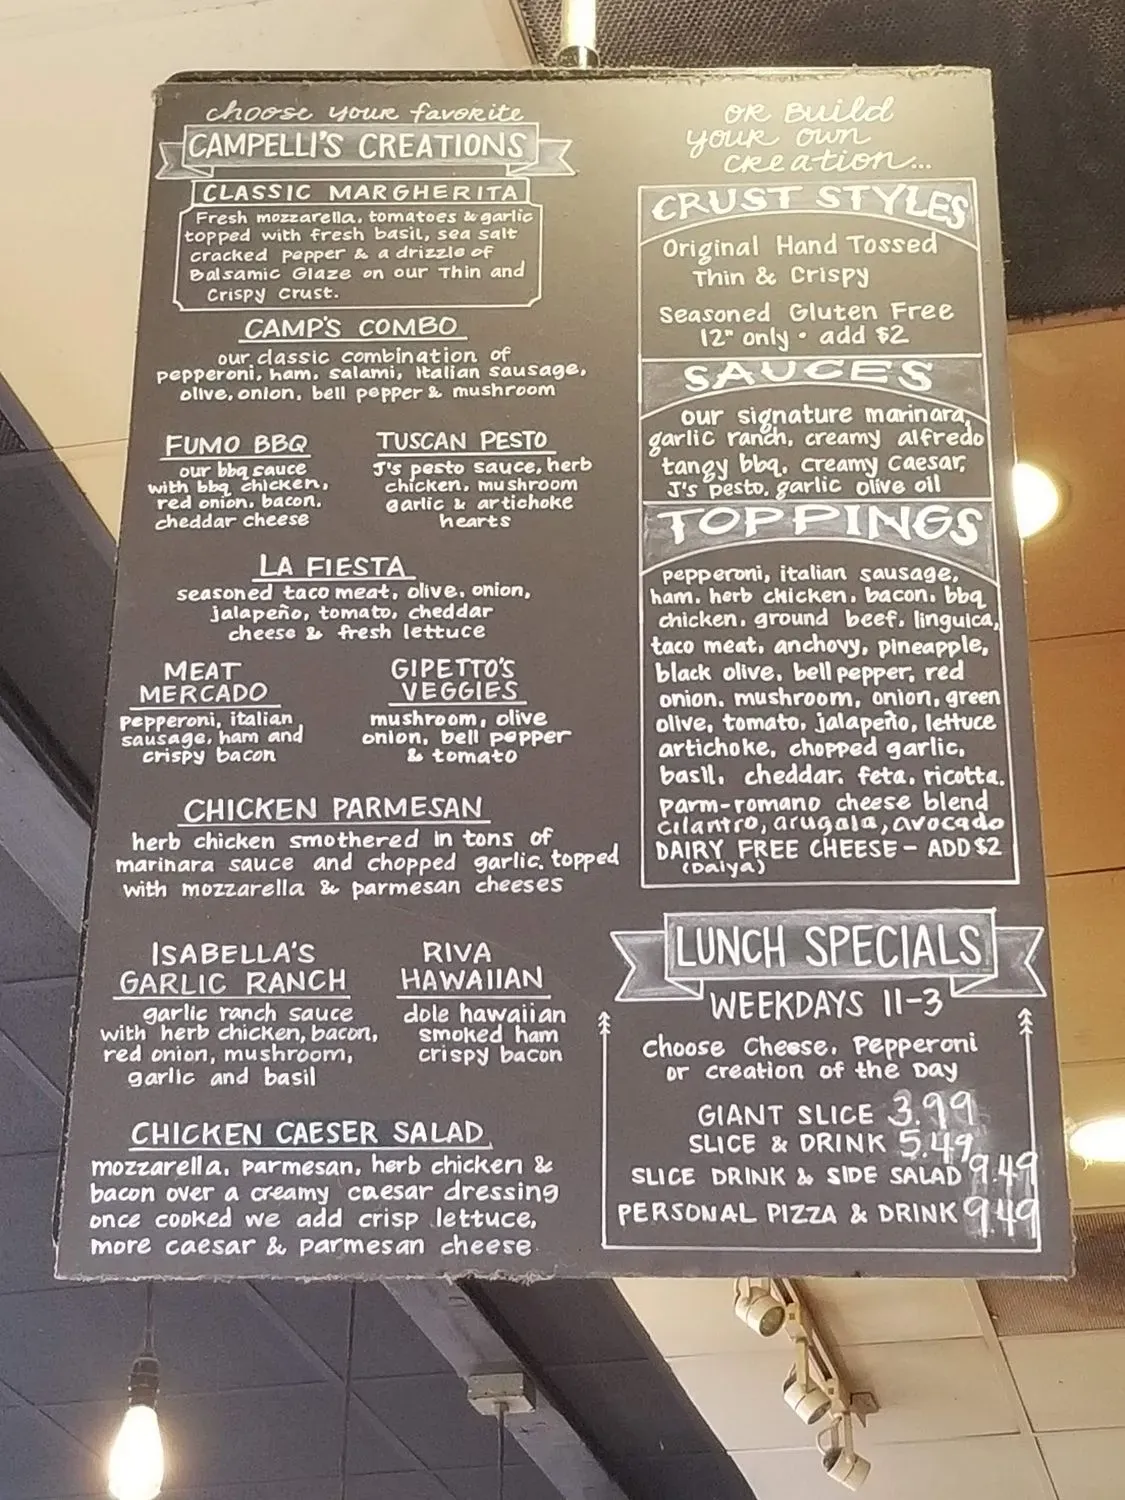 choose your favorite
CAMPELLI'S CREATIONS
CLASSIC MARGHERITA
Fresh mozzarella, tomatoes & garlic
topped with fresh basil, sea salt
cracked pepper & a drizzle of
Balsamic Glaze on our Thin and
Crispy Crust.
CAMP'S COMBO
our classic combination of
pepperoni, ham, salami, italian sausage,
olive, onion, bell pepper & mushroom
FUMO BBQ
our bbq sauce
with bbq chicken,
red onion, bacon,
cheddar cheese
TUSCAN PESTO
J's pesto sauce, herb
chicken, mushroom
garlic & artichoke
hearts
LA FIESTA
seasoned taco meat, olive, onion,
jalapeño, tomato, cheddar
cheese & fresh lettuce
MEAT
MERCADO
pepperoni, italian
sausage, ham and
crispy bacon
GIPETTO'S
VEGGIES
mushroom, olive
onion, bell pepper
& tomato
CHICKEN PARMESAN
herb chicken smothered in tons of
marinara sauce and chopped garlic, topped
with mozzarella & parmesan cheeses
ISABELLA'S
GARLIC RANCH
garlic ranch sauce
with herb chicken, bacon,
red onion, mushroom,
garlic and basil
RIVA
HAWAIIAN
dole hawaiian
smoked ham
crispy bacon
CHICKEN CAESER SALAD
mozzarella, parmesan, herb chicken &
bacon over a creamy caesar dressing
once cooked we add crisp lettuce,
more caesar & parmesan cheese
OR Build
your own
creation...
CRUST STYLES
Original Hand Tossed
Thin & Crispy
Seasoned Gluten Free
12" only • add $2
SAUCES
our signature marinara,
garlic ranch, creamy alfredo
tangy bbq, creamy caesar,
J's pesto, garlic olive oil
TOPPINGS
pepperoni, italian sausage,
ham, herb chicken, bacon, bbq
chicken, ground beef, linguica,
taco meat, anchovy, pineapple,
black olive, bell pepper, red
onion, mushroom, onion, green
olive, tomato, jalapeño, lettuce
artichoke, chopped garlic,
basil, cheddar, feta, ricotta,
parm-romano cheese blend
cilantro, arugala, avocado
DAIRY FREE CHEESE - ADD $2
(Daiya)
LUNCH SPECIALS
WEEKDAYS 11-3
Choose Cheese, Pepperoni
or creation of the Day
GIANT SLICE 3.99
SLICE & DRINK 5.49
SLICE DRINK & SIDE SALAD 9.49
PERSONAL PIZZA & DRINK 9.49